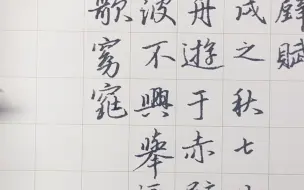 壁賦
戌之秋七
舟遊于赤壁
波不興舉
歌窈窕